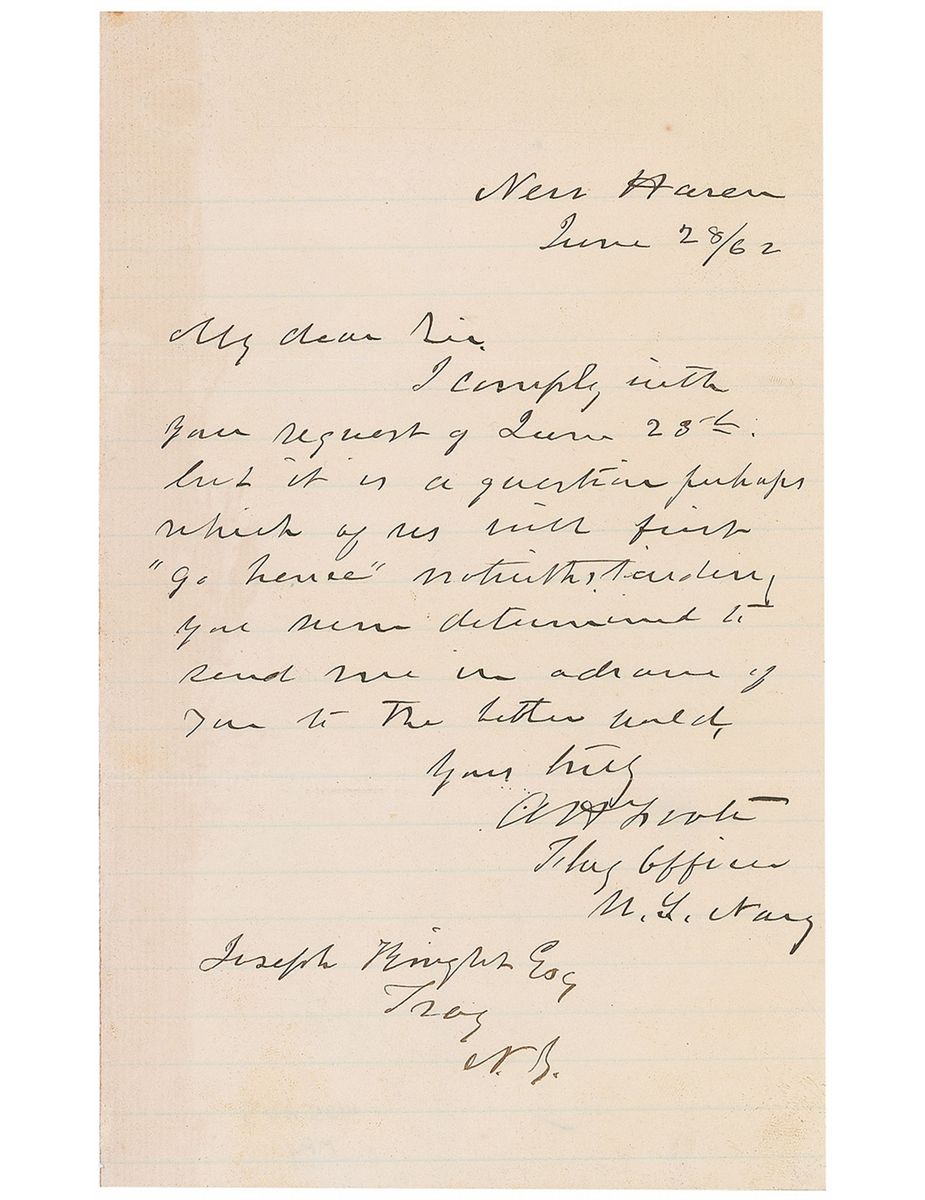 New Haven
June 28/62
My dear Sir,
I comply with
your request of June 23th.
but it is a question perhaps
which of us will first
"go hence" notwithstanding
you seem determined to
send me in advance of
you to the better world,
Yours truly
A H Foote
Flag Officer
U.S. Navy
Joseph Knight Esq
Troy
N.Y.